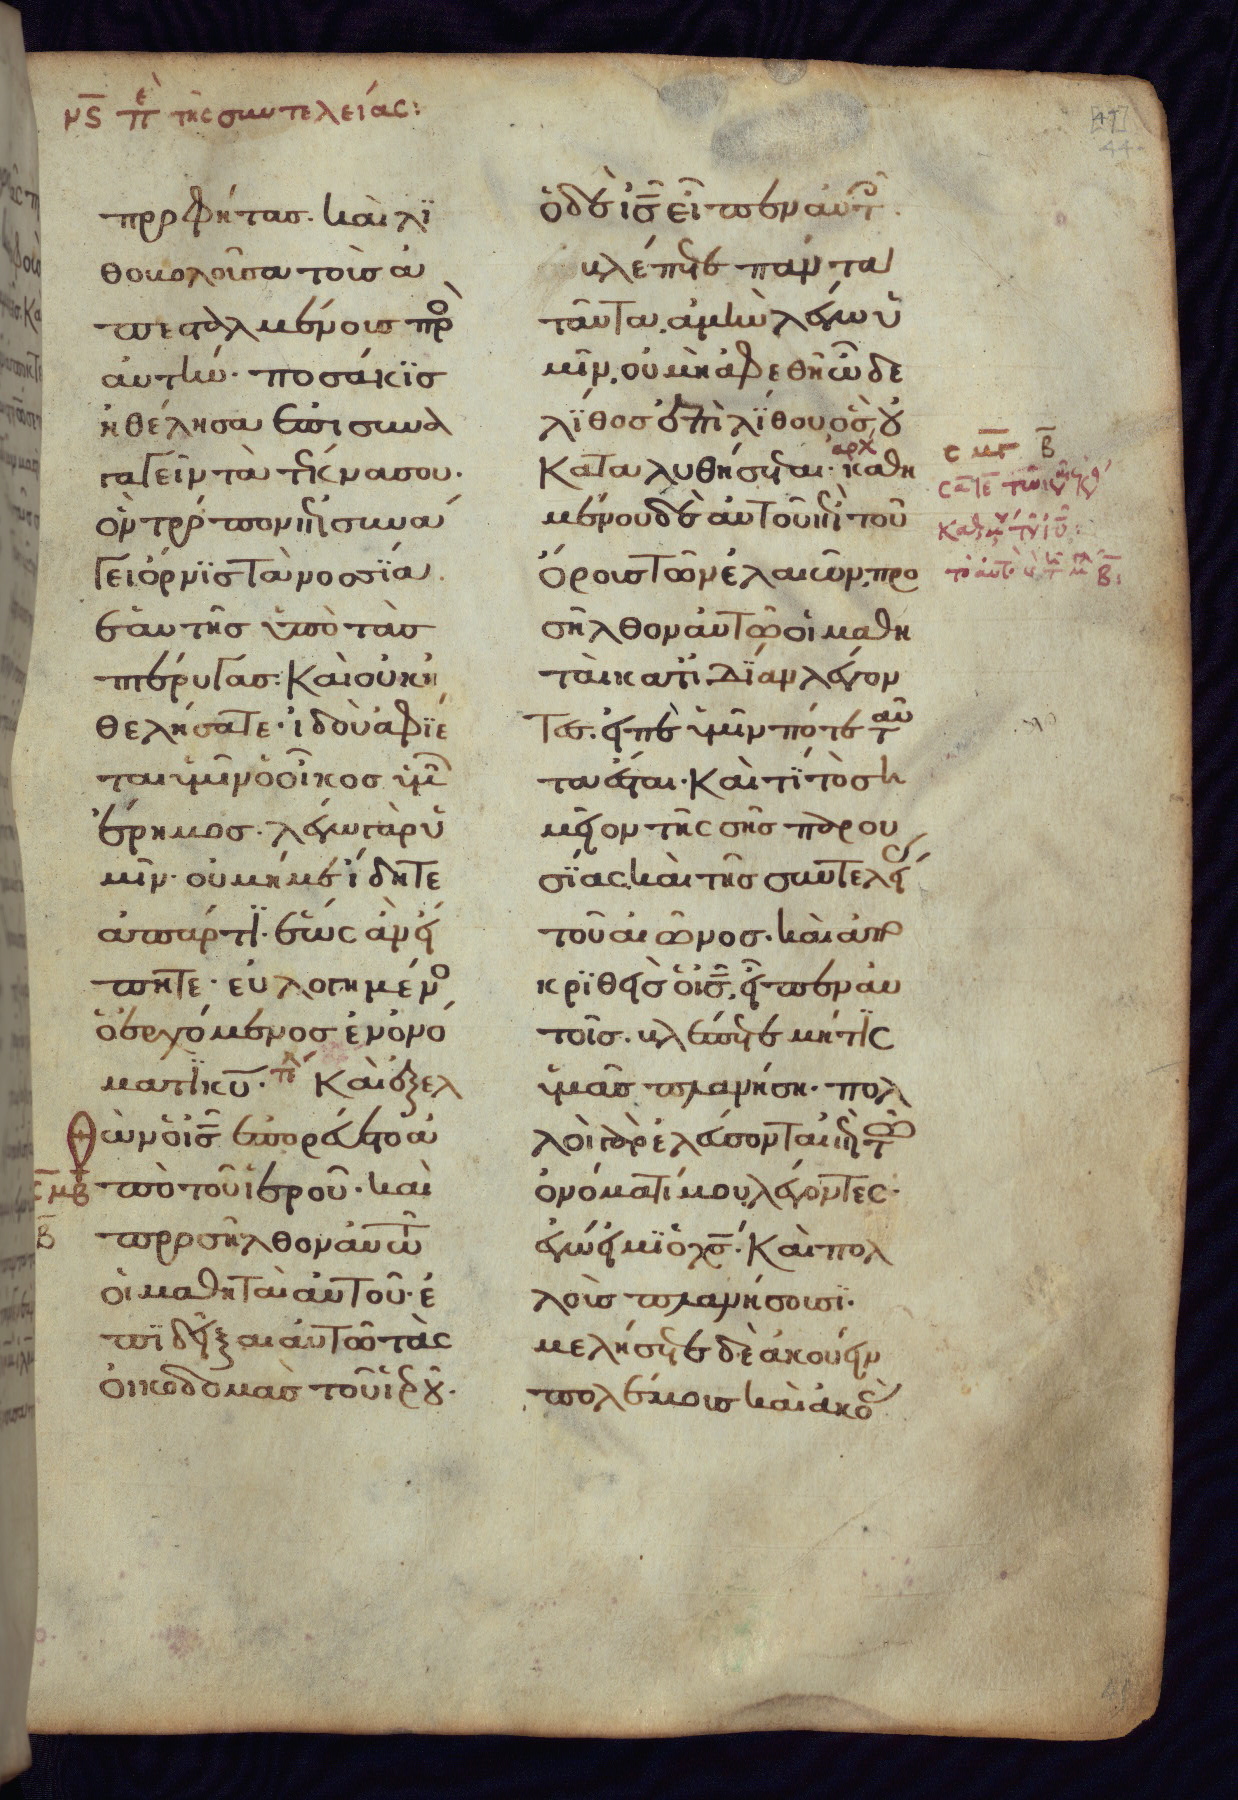 ν̅ϛ̅ πε τῆς συντελείας:
προφήτας. καὶ λϊ
θοβολοῦσα τοὺσ ἀ
πεσταλμένους πρὸ
αὐτήν. ποσάκϊσ
ἠθέλησα ἐπισυνα
γαγεῖν τὰ τέκνα σου.
ὃν τρόπον ἐπισυνά
γει ὄρνϊσ τὰ νοσσία
ἑαυτῆσ ὑπὸ τὰσ
πτέρυγασ: Καὶ οὐκ ἠ
θελήσατε. ἰδοὺ ἀφϊέ
ται ὑμῖν ὁ οἶκοσ ὑμ
ἔρημοσ. λέγω γὰρ ὑ
μῖν. οὐ μή με ἴδητε
ἀπάρτϊ. ἕως ἂν εἴ
πητε. εὐλογημένο
ὁ ἐρχόμενοσ ἐν ὀνό
ματϊ κ̅υ̅. τέλ Καὶ ἐξελ
θὼν ὁ ι̅σ̅ ἐπορεύετο ἀ
σ̅μ̅β̅ πὸ τοῦ ἱεροῦ. καὶ
β̅ προσῆλθον αὐτῶ
οἱ μαθηταὶ αὐτοῦ. ἐ
πιδεῖξαι αὐτῶ τὰς
οἰκοδομὰσ τοῦ ἱεροῦ.
ὁ δὲ ι̅σ̅ εἶπεν αὐτ
βλέπετε πάντα
ταῦτα. ἀμὴν λέγω ὑ
μῖν, οὐ μὴ ἀφεθῆ ὧδε
λϊθοσ ἐπὶ λϊθον ὃσ οὐ
Καταλυθήσεται. ἀρχ καθη
σ̅μ̅γ̅ β̅
μένου δὲ αὐτοῦ ἐπὶ τοῦ
ὄρουσ τῶν ἐλαιῶν, προ
σῆλθον αὐτῶ οἱ μαθη
ταὶ κατ ἰδϊαν λέγον
τεσ. εἰπὲ ἡμῖν πότε ταῦ
τα ἔσται. Καὶ τί τὸ ση
μεῖον τῆς σῆσ παρου
σϊας, καὶ τῆσ συντελεί
τοῦ αἰῶνοσ. καὶ ἀπο
κρϊθεὶσ ὁ ι̅σ̅, εἶπεν αὐ
τοῖσ. βλέπετε μή τϊς
ὑμᾶσ πλανήση. πολ
λοὶ γὰρ ἐλεύσονται ἐπὶ τῶ
ὀνόματί μου, λέγοντες.
ἐγώ εἰμϊ ὁ χ̅σ̅. Καὶ πολ
λοὺσ πλανήσουσϊ.
μελήσετε δὲ ἀκούειν
πολέμουσ καὶ ἀκοὰ